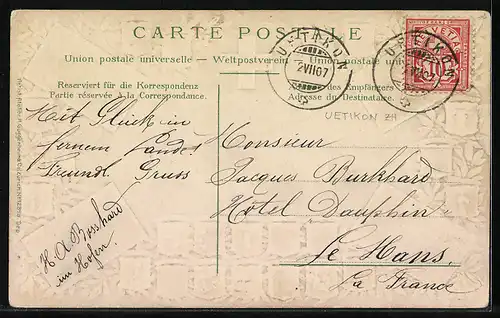 CARTE POSTALE
Union postale universelle – Weltpostverein – Union postale universelle
Reserviert für die Korrespondenz
Partie réservée à la Correspondance.
des Empfängers
Adresse du Destinataire.
UETIKON
2 VII 07
UETIKON
HELVETIA
10
UETIKON ZH
Mit Glück in
fernem Lande
Freundl. Gruss
H A Bosshard
im Hofen.
Monsieur
Jacques Burkhard
Hôtel Dauphin
Le Mans
La France